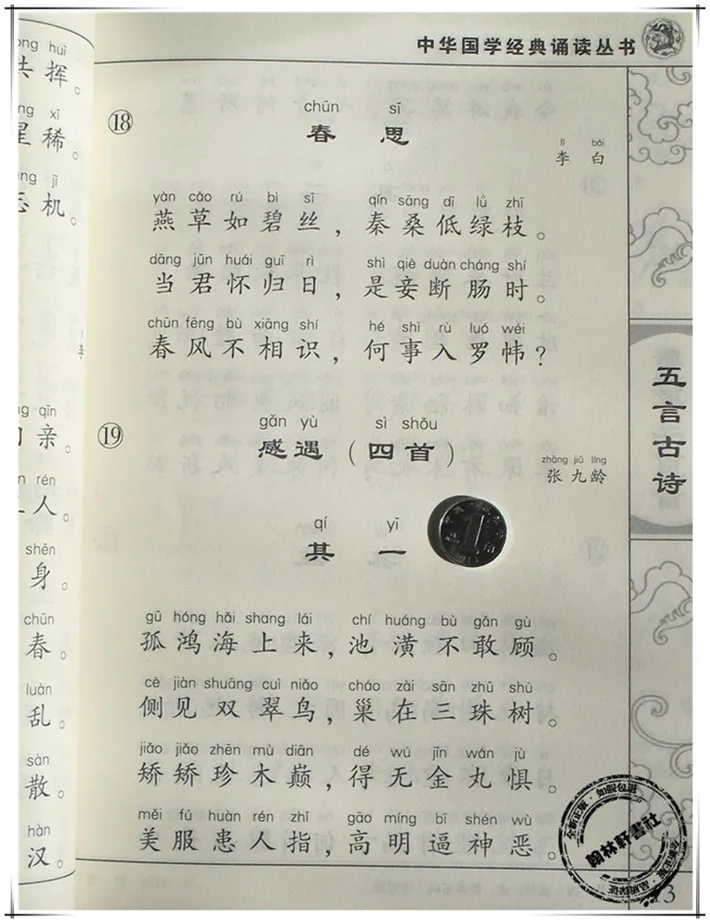 ong huī
共挥。
ng xī
星稀。
ng jī
忘机。
ng qīn
亲。
n rén
人。
shēn
身。
chūn
春。
luàn
乱。
sàn
散。
hàn
汉。
中华国学经典诵读丛书
⑱
chūn sī
春思
lǐ bái
李白
yàn cǎo rú bì sī qín sāng dī lǜ zhī
燕草如碧丝，秦桑低绿枝。
dāng jūn huái guī rì shì qiè duàn cháng shí
当君怀归日，是妾断肠时。
chūn fēng bù xiāng shí hé shì rù luó wéi
春风不相识，何事入罗帏？
⑲
gǎn yù sì shǒu
感遇（四首）
zhāng jiǔ líng
张九龄
qí yī
其一
1
gū hóng hǎi shang lái chí huáng bù gǎn gù
孤鸿海上来，池潢不敢顾。
cè jiàn shuāng cuì niǎo cháo zài sān zhū shù
侧见双翠鸟，巢在三珠树。
jiǎo jiǎo zhēn mù diān dé wú jīn wán jù
矫矫珍木巅，得无金丸惧。
měi fú huàn rén zhǐ gāo míng bī shén wù
美服患人指，高明逼神恶。
五言古诗
全新正版·如假包退
翰林轩书社
全新正版·品质保证
13